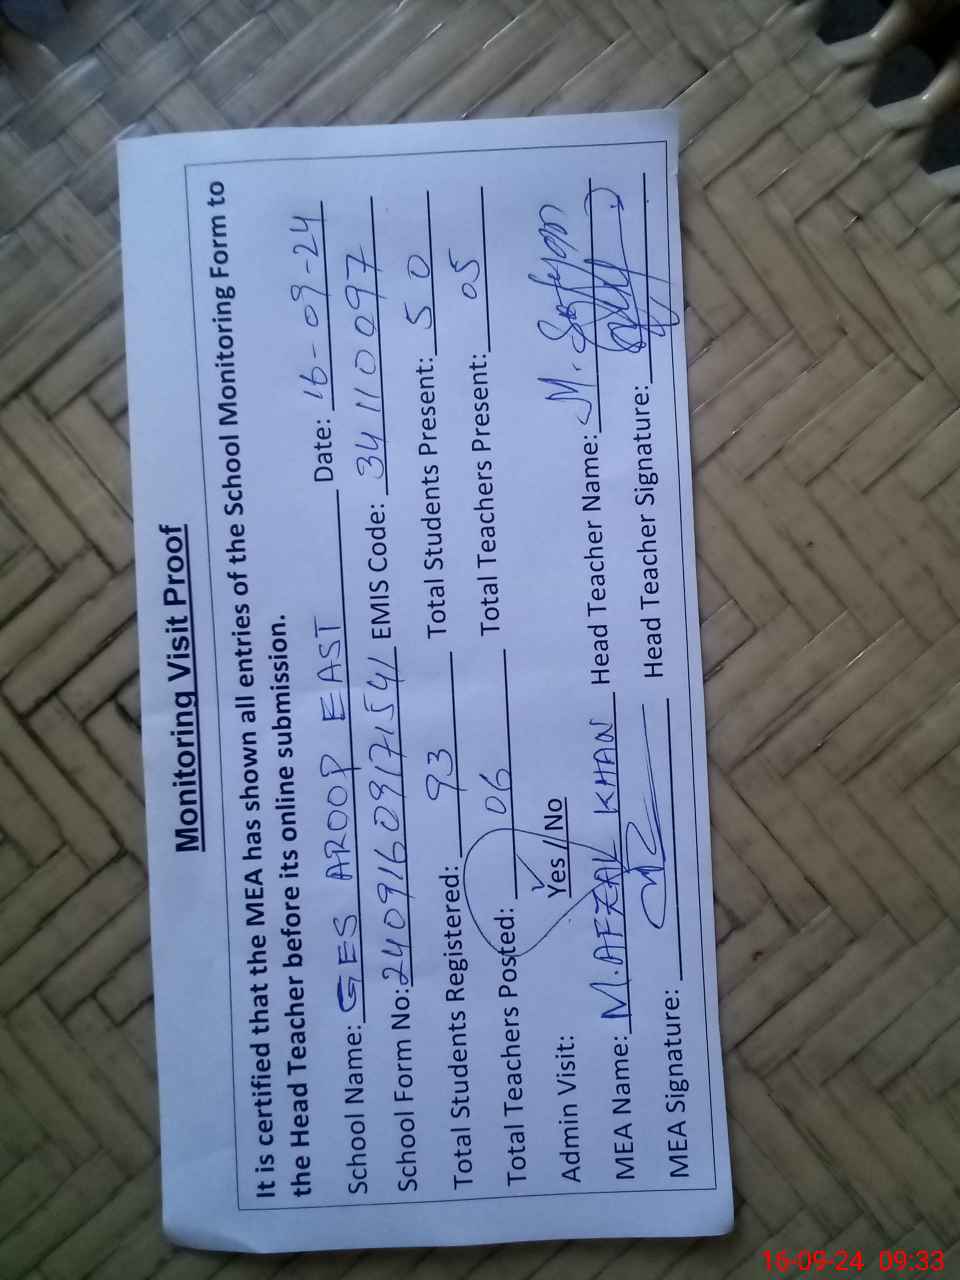 Monitoring Visit Proof
It is certified that the MEA has shown all entries of the School Monitoring Form to
the Head Teacher before its online submission.
School Name: GES AROOP EAST Date: 16-09-24
School Form No: 24091609171541 EMIS Code: 34110097
Total Students Registered: 93 Total Students Present: 50
Total Teachers Posted: 06 Total Teachers Present: 05
Admin Visit: Yes / No
MEA Name: M. AFZAL KHAN Head Teacher Name: M. Sufyan
MEA Signature: Head Teacher Signature:
16-09-24 09:33